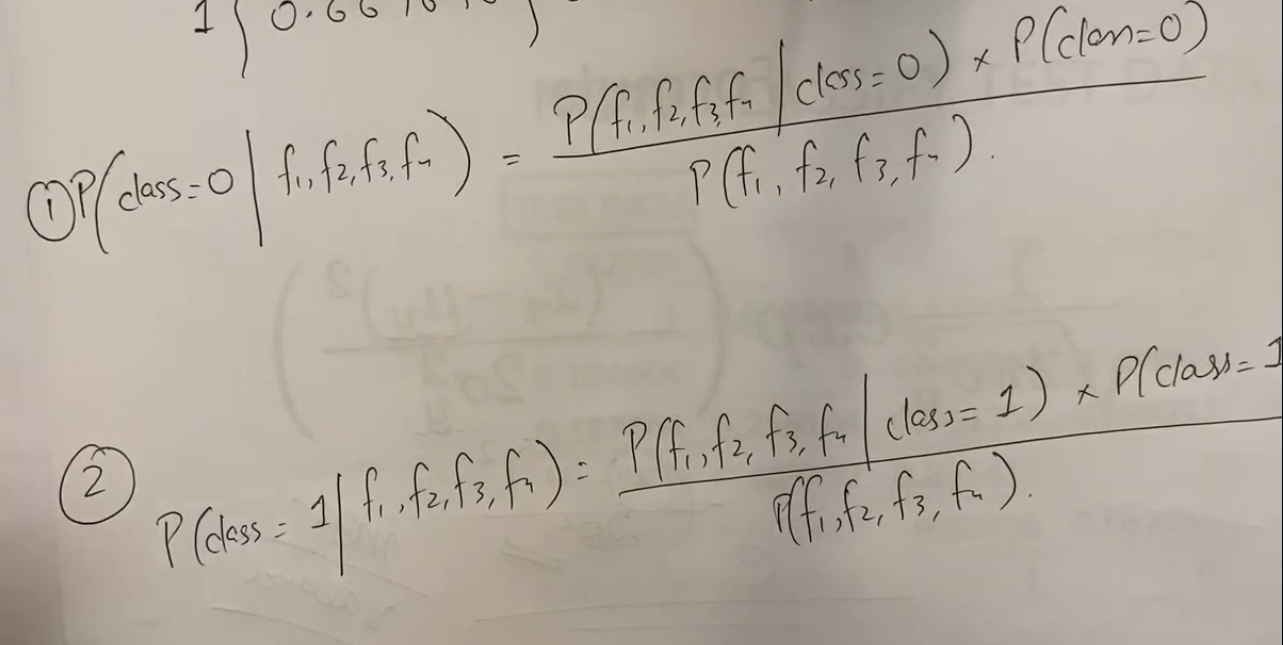 1 ( 0.66
① P(class=0 | f₁, f₂, f₃, f₄) = P(f₁, f₂, f₃, f₄ | class=0) × P(class=0)
P(f₁, f₂, f₃, f₄).
② P(class=1 | f₁, f₂, f₃, f₄) = P(f₁, f₂, f₃, f₄ | class=1) × P(class=1
P(f₁, f₂, f₃, f₄).